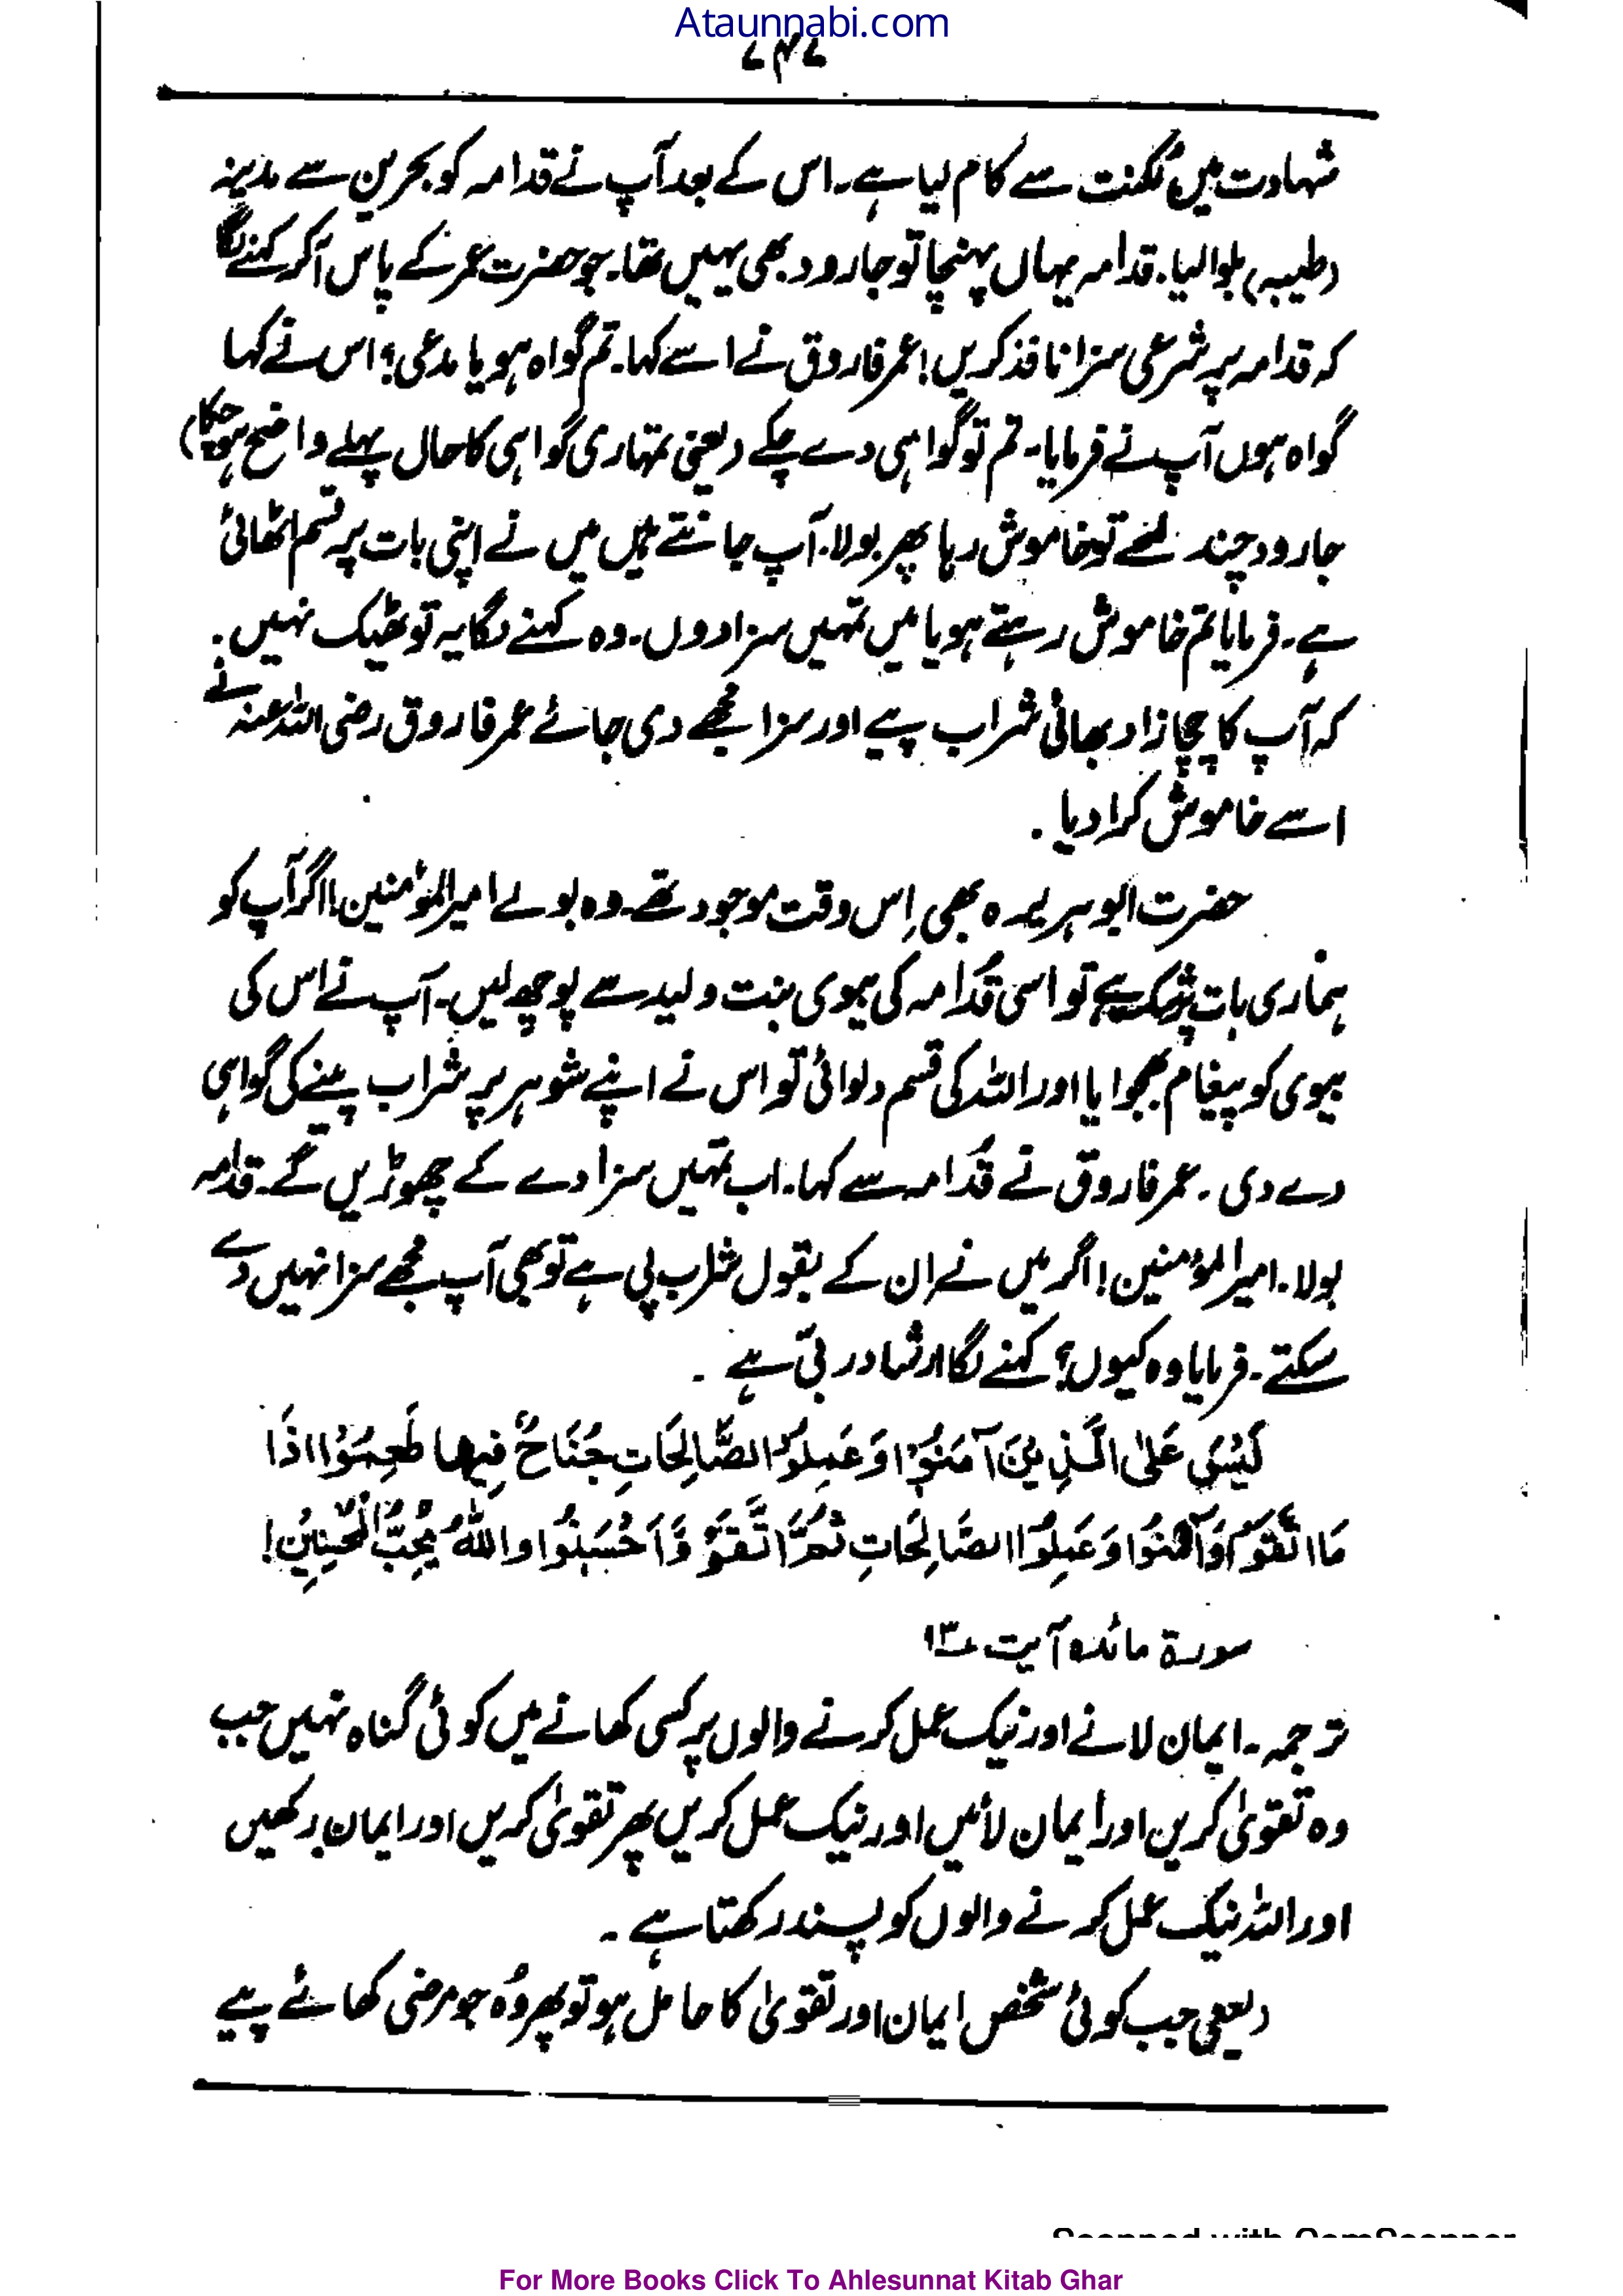 Ataunnabi.com
شہادت میں لکنت سے کام لیا ہے۔ اس کے بعد آپ نے قدامہ کو بحرین سے مدینہ
(طیبہ) بلوا لیا۔ قدامہ یہاں پہنچا تو جارود بھی یہیں تھا۔ جو حضرت عمر کے پاس آ کر کہنے لگا
کہ قدامہ پر شرعی سزا نافذ کریں! عمر فاروق نے اسے کہا۔ تم گواہ ہو یا مدعی؟ اس نے کہا
گواہ ہوں آپ نے فرمایا۔ تم تو گواہی دے چکے (یعنی تمہاری گواہی کا حال پہلے واضح ہو چکا)
جارود چند لمحے تو خاموش رہا پھر بولا۔ آپ جانتے ہیں میں نے اپنی بات پر قسم اٹھائی
ہے۔ فرمایا تم خاموش رہتے ہو یا میں تمہیں سزا دوں۔ وہ کہنے لگا یہ تو ٹھیک نہیں۔
کہ آپ کا چچا زاد بھائی شراب پیے اور سزا مجھے دی جائے عمر فاروق رضی اللہ عنہ نے
اسے خاموش کرا دیا۔
حضرت ابو ہریرہ بھی اِس وقت موجود تھے۔ وہ بولے امیر المؤمنین! اگر آپ کو
ہماری بات پر شک ہے تو اسی قُدامہ کی بیوی بنت ولید سے پوچھ لیں۔ آپ نے اس کی
بیوی کو پیغام بھجوایا اور اللہ کی قسم دلوائی تو اس نے اپنے شوہر پر شراب پینے کی گواہی
دے دی۔ عمر فاروق نے قُدامہ سے کہا۔ اب تمہیں سزا دے کے چھوڑیں گے۔ قدامہ
بولا۔ امیر المؤمنین! اگر میں نے ان کے بقول شراب پی ہے تو بھی آپ مجھے سزا نہیں دے
سکتے۔ فرمایا وہ کیوں؟ کہنے لگا ارشاد ربّی ہے۔
لَيْسَ عَلَى الَّذِيْنَ آمَنُوْا وَعَمِلُوا الصَّالِحَاتِ جُنَاحٌ فِيهَا طَعِمُوْا اذَا
مَا اتَّقَوْا وَآمَنُوا وَعَمِلُوْا الصَّالِحَاتِ ثُمَّ اتَّقَوْ وَّاَحْسَنُوا وَاللّٰهُ يُحِبُّ الْمُحْسِنِيْنَ!
سورۃ مائدہ آیت ۱۳
ترجمہ۔ ایمان لانے اور نیک عمل کرنے والوں پر کسی کھانے میں کوئی گناہ نہیں جب
وہ تقویٰ کریں اور ایمان لائیں اور نیک عمل کریں پھر تقویٰ کریں اور ایمان رکھیں
اور اللہ نیک عمل کرنے والوں کو پسند رکھتا ہے۔
(یعنی جب کوئی شخص ایمان اور تقویٰ کا حامل ہو تو پھر وُہ جو مرضی کھائے پیے
Scanned with CamScanner
For More Books Click To Ahlesunnat Kitab Ghar